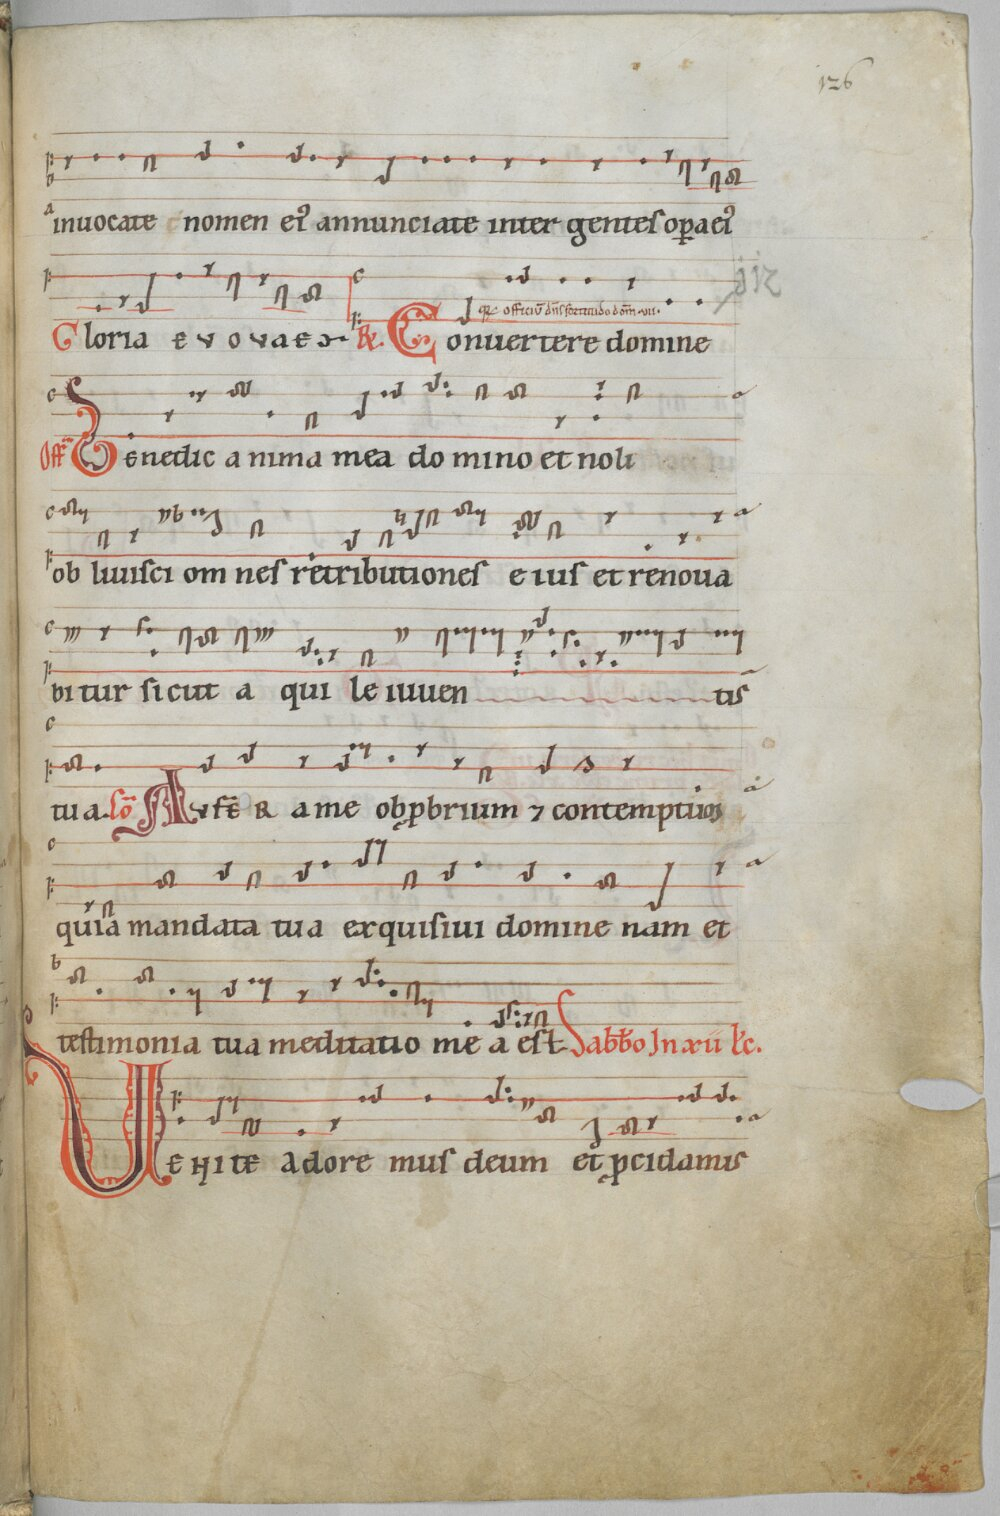 126
inuocate nomen ei⁹ annunciate inter gentes opa ei⁹
Gloria e v o v a e ℟. Conuertere domine
Off Benedic anima mea domino et noli
obliuisci omnes retributiones eius et renoua
bitur sicut aquile iuuen tis
tua. Cō Avfer a me obpbrium ⁊ contemptum
quia mandata tua exquisiui domine nam et
testimonia tua meditatio mea est Sabbo In xii lc.
Uenite adoremus deum et pcidamus